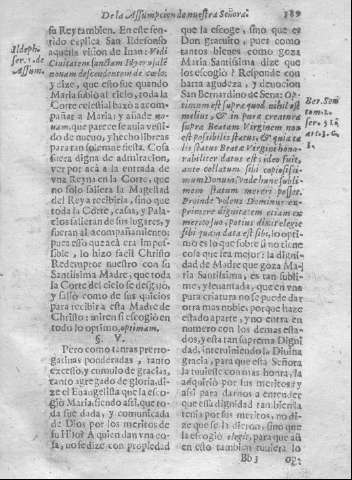 De la Assumpcion de nuestra Señora. 189
su Rey tambien. En este sen-
tido esplica San Ildefonso
aquella vision de Iuan: Vidi
Civitatem sanctam Hyerusalē
novam descendentem de cælo;
y dize, que esto fue quando
Maria subio al cielo, toda la
Corte celestial baxo a acom-
pañar a Maria; y añade no-
uam, que parece se auia vesti-
do de nueuo, y hecho libreas
para tan solemne fiesta. Cosa
fuera digna de admiracion,
ver por acà a la entrada de
vna Reyna en la Corte, que
no solo saliera la Magestad
del Rey a recibirla, sino que
toda la Corte, casas, y Pala-
cios salieran de sus lugares, y
fueran al acompañamiento
pues esso que acà era impos-
sible, lo hizo facil Christo
Redemptor nuestro con su
Santissima Madre, que toda
la Corte del cielo se desquiciò,
y saliò como de sus quicios
para recibir a esta Madre de
Christo: miren si escogiò en
todo lo optimo, optimam.
§. V.
Pero como tantas prerro-
gatiuas ponderadas, tanto
excesso, y cumulo de gracias,
tanto agregado de gloria, di-
ze el Euangelista que la esco-
giò Maria siendo assi, que to-
da fue dada, y comunicada
de Dios por los meritos de
su Hijo? A quien dan vna co-
sa, no se dize con propiedad
Ildeph.
ser. 1. de
Assum.
que la escoge, sino que es
Don gratuito, pues como
tantos bienes como goza
Maria Santissima dize que
los escogiò? Responde con
harra agudeza, y deuocion
San Bernardino de Sena: Op-
timum est supra quod nihil est
melius, & in pura creatura
supra Beatam Virginem non
est possibilis status, & quia ta-
lis status Beatæ Virgini hono-
rabiliter datus est; ideo fuit,
ante collatum sibi copiosissi-
mum Donum, vnde hunc subli-
mem statum mereri posset.
Proinde volens Dominus ex-
primere dignitatem etiam ex
merito suo, potius dixit elegit
sibi quam data est sibi, lo opti-
mo es lo que sobre si no tiene
cosa que sea mejor: la digni-
dad de Madre que goza Ma-
ria Santissima, es tan subli-
me, y leuantada, que en vna
pura criatura no se puede dar
otra mas noble; porque haze
estado aparte, y no entra en
numero con los demas esta-
dos, y esta tan suprema Digni-
dad, interuiniendo la Diuina
gracia, para que esta Señora
la tuuiesse con mas honra, la
adquiriò por sus meritos: y
assi para darnos a entender
que essa dignidad tambien la
tenia por sus meritos, no di-
ze que se la dieron; sino que
la escogiò elegit, para que aũ
en esto tambien tuuiera lo
Ber. Sen.
tom. 2.
ser. 51.
art. 3. c.
3.
Bb 3
op-